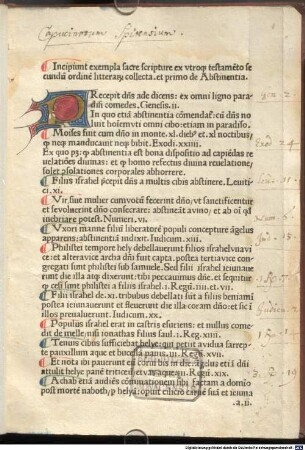 Capucinorum Spirensium.
¶ Incipiunt exempla sacre scripture ex vtroqȝ testamēto se
cundū ordinē litteraꝝ collecta. et primo de Abstinentia.
Recepit dñs ade dicens: ex omni ligno para
disi comedes. Genesis.ii.
In quo etiā abstinētia cōmendaf: cū dñs no
luit hoiem vti omni cibo: etiam in paradiso.
¶ Moises fuit cum dño in monte. xl. diebꝰ et .xl noctibus
qȝ neqȝ manducauit neqȝ bibit. Exodi. xxiiii.
Ex quo pȝ: qȝ abstinentia est bona dispositio ad capiēdas re
uelatiōes diuinas: et qȝ homo refectus diuina reuelatione;
solet ꝓsolationes corporales abhorrere.
¶ Filiis israhel p̄cepit dñs a multis cibis abstinere. Leuiti
ci. xi.
¶ Vir siue mulier cum votū fecerint dño, vt sanctificentur
et se voluerint dño consecrare: abstineāt a vino, et ab oī qd
inebriare potest. Numeri. vi.
¶ Vxori manne filiū liberatorē populi concipere āgelus
apparens: abstinentiā indixit. Iudicum. xiii.
¶ Philistei tempore hely debellauerunt filios israhel vna vi
ce: et altera vice archa dñi fuit capta. postea tertia vice con
gregati sunt philistei sub samuele. Sed filii israhel ieiunaue
runt die illa atqȝ dixerunt: tibi peccauimus dñe. et sequitur
qȝ cesi sunt philistei a filiis israhel. i. Regū. iiii. et vii.
¶ Filii israhel de .xi. tribubus debellati fuēt a filiis beniami
postea ieiunauerunt et fleuerunt die illa coram dño: et sic i
illos preualuerunt. Iudicum. xx.
¶ Populus israhel erat in castris esuriens: et nullus comedit
de melle, nisi ionathas filius saul. i. Reg. xiiii.
¶ Tenuis cibus sufficiebat helye: qui petiit a vidua sarrepte
pauxillum aque et bucella panis. iii. Reg. xvii.
¶ Achab etiā audiēs cōminationem sibi factam a domīo
post mortē naboth
a.ii.